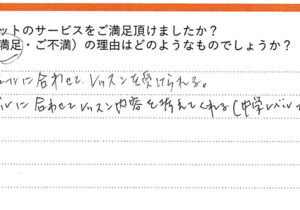 ットのサービスをご満足頂けましたか？
満足・ご不満）の理由はどのようなものでしょうか？
に合わせて、レッスンを受けられる。
ルに合わせてレッスン内容を考えてくれる（中学レベル